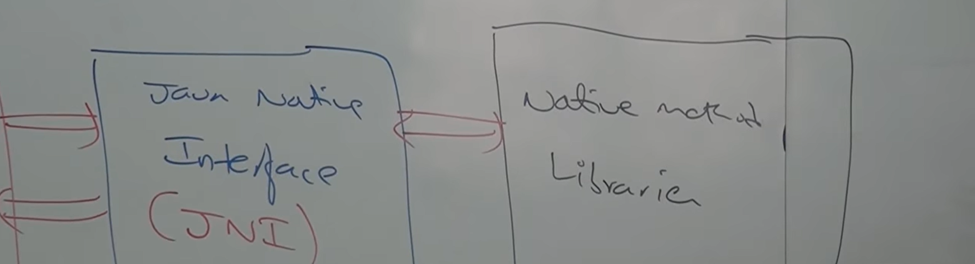 Java Native
Interface
(JNI)
Native method
Librarie